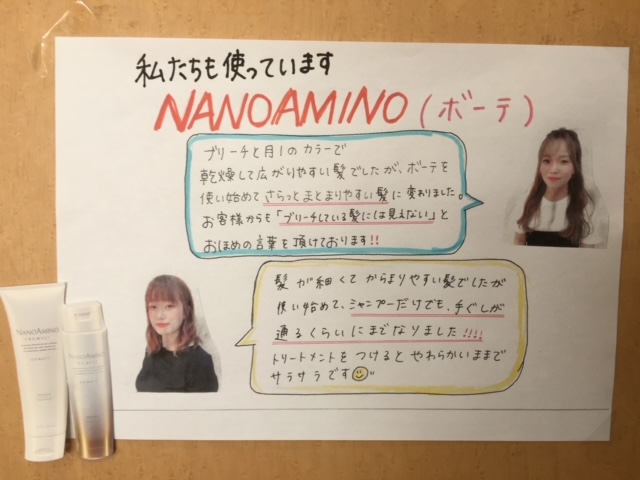 私たちも使っています
NANOAMINO (ボーテ)
ブリーチと月1のカラーで
乾燥して広がりやすい髪でしたが、ボーテを
使い始めてさらっとまとまりやすい髪に変わりました。
お客様からも「ブリーチしている髪には見えない」と
おほめの言葉を頂けております!!
髪が細くてからまりやすい髪でしたが
使い始めて、シャンプーだけでも、手ぐしが
通るくらいにまでなりました!!!!
トリートメントをつけるとやわらかいままで
サラサラです
NANOAMINO
NANOAMINO